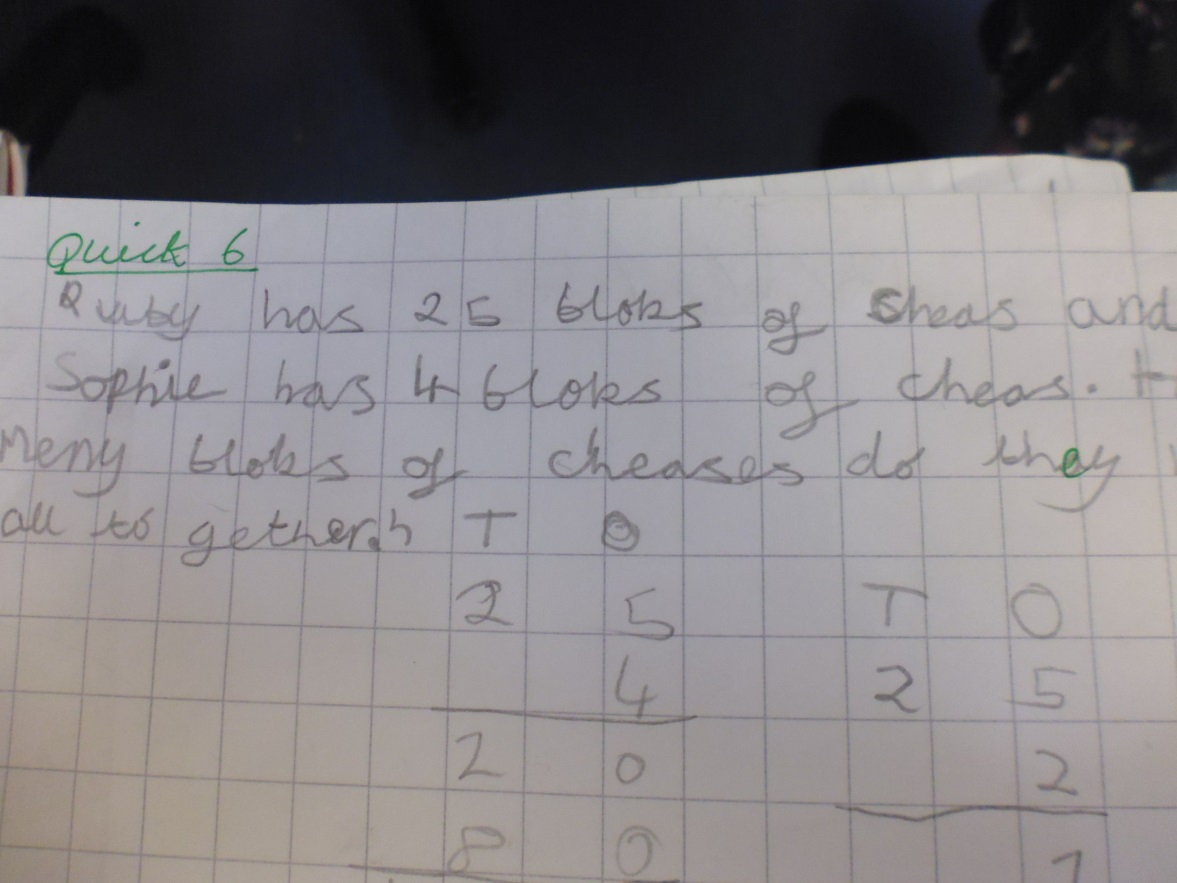 Quick 6
Ruby has 25 bloks of sheas and
Sophie has 4 bloks of cheas.
meny bloks of cheases do they
all to gether T O
2 5 T O
4 2 5
2 0 2
8 0